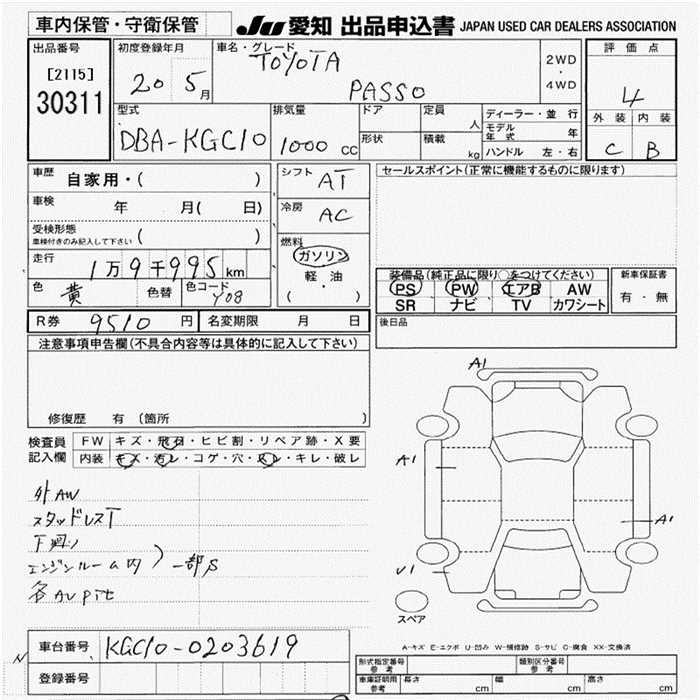 車内保管・守衛保管
JU 愛知 出品申込書 JAPAN USED CAR DEALERS ASSOCIATION
出品番号
[2115]
30311
初度登録年月
20 5月
車名・グレード
TOYOTA
PASSO
2WD
・
4WD
評価点
4
外装 内装
C B
型式
DBA-KGC10
排気量
1000 CC
ドア
形状
定員
人
積載
kg
ディーラー・並行
モデル年式 年
ハンドル 左・右
車歴
自家用・( )
車検
年 月( 日)
受検形態
車検付きのみ記入して下さい ( )
走行
1万9千995km
色
黄 色替
色コード
Y08
シフト AT
冷房 AC
燃料
ガソリン
軽・油
( )
セールスポイント(正常に機能するものに限ります)
装備品(純正品に限り○をつけてください)
PS PW エアB AW
SR ナビ TV カワシート
新車保証書
有・無
後日品
R券 9510 円 名変期限 月 日
注意事項申告欄(不具合内容等は具体的に記入して下さい)
修復歴 有 (箇所 )
検査員
記入欄
FW キズ・飛石・ヒビ割・リペア跡・X要
内装 キズ・汚レ・コゲ・穴・スレ・キレ・破レ
外AW
スタッドレスT
下廻り
エンジンルーム内 ) 一部S
各AU Pte
A1
A1
A1
U1
スペア
A-キズ E-エクボ U-凹み W-補修跡 S-サビ C-腐食 XX-交換済
車台番号 KGC10-0203619
登録番号
N
形式指定番号
参考
類別区分番号
参考
車庫証明用
参考
長さ cm 幅 cm 高さ cm